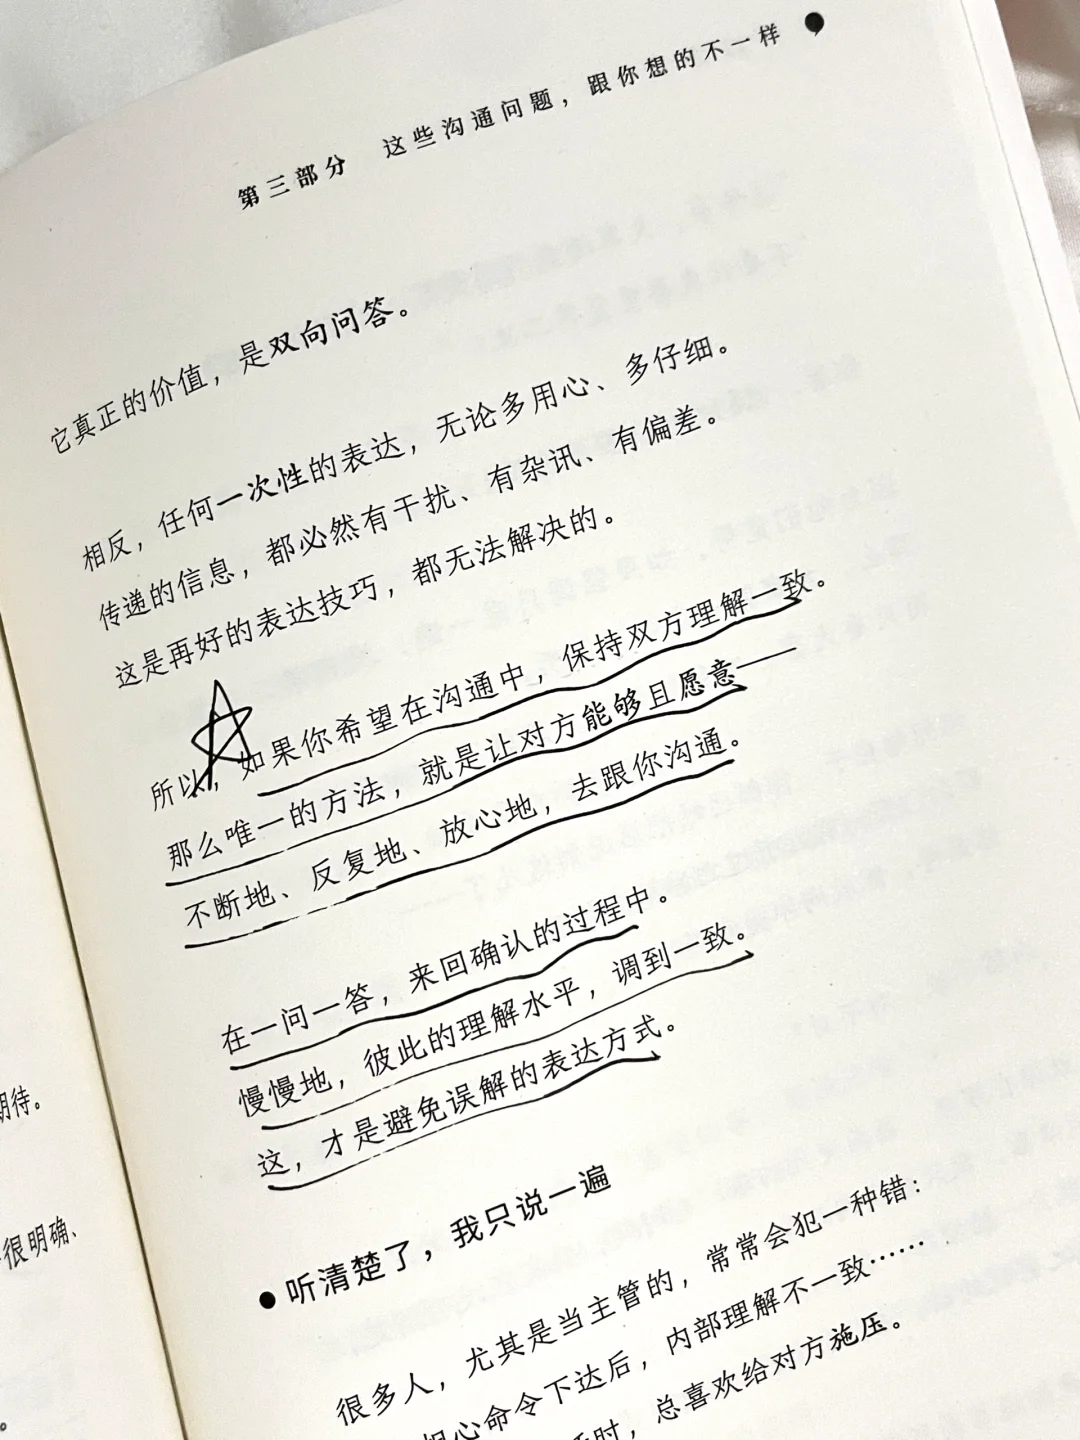 第三部分 这些沟通问题，跟你想的不一样
它真正的价值，是双向问答。
相反，任何一次性的表达，无论多用心、多仔细。
传递的信息，都必然有干扰、有杂讯、有偏差。
这是再好的表达技巧，都无法解决的。
所以，如果你希望在沟通中，保持双方理解一致。
那么唯一的方法，就是让对方能够且愿意——
不断地、反复地、放心地，去跟你沟通。
在一问一答，来回确认的过程中。
慢慢地，彼此的理解水平，调到一致。
这，才是避免误解的表达方式。
期待。
很明确、
听清楚了，我只说一遍
很多人，尤其是当主管的，常常会犯一种错：
担心命令下达后，内部理解不一致……
时，总喜欢给对方施压。